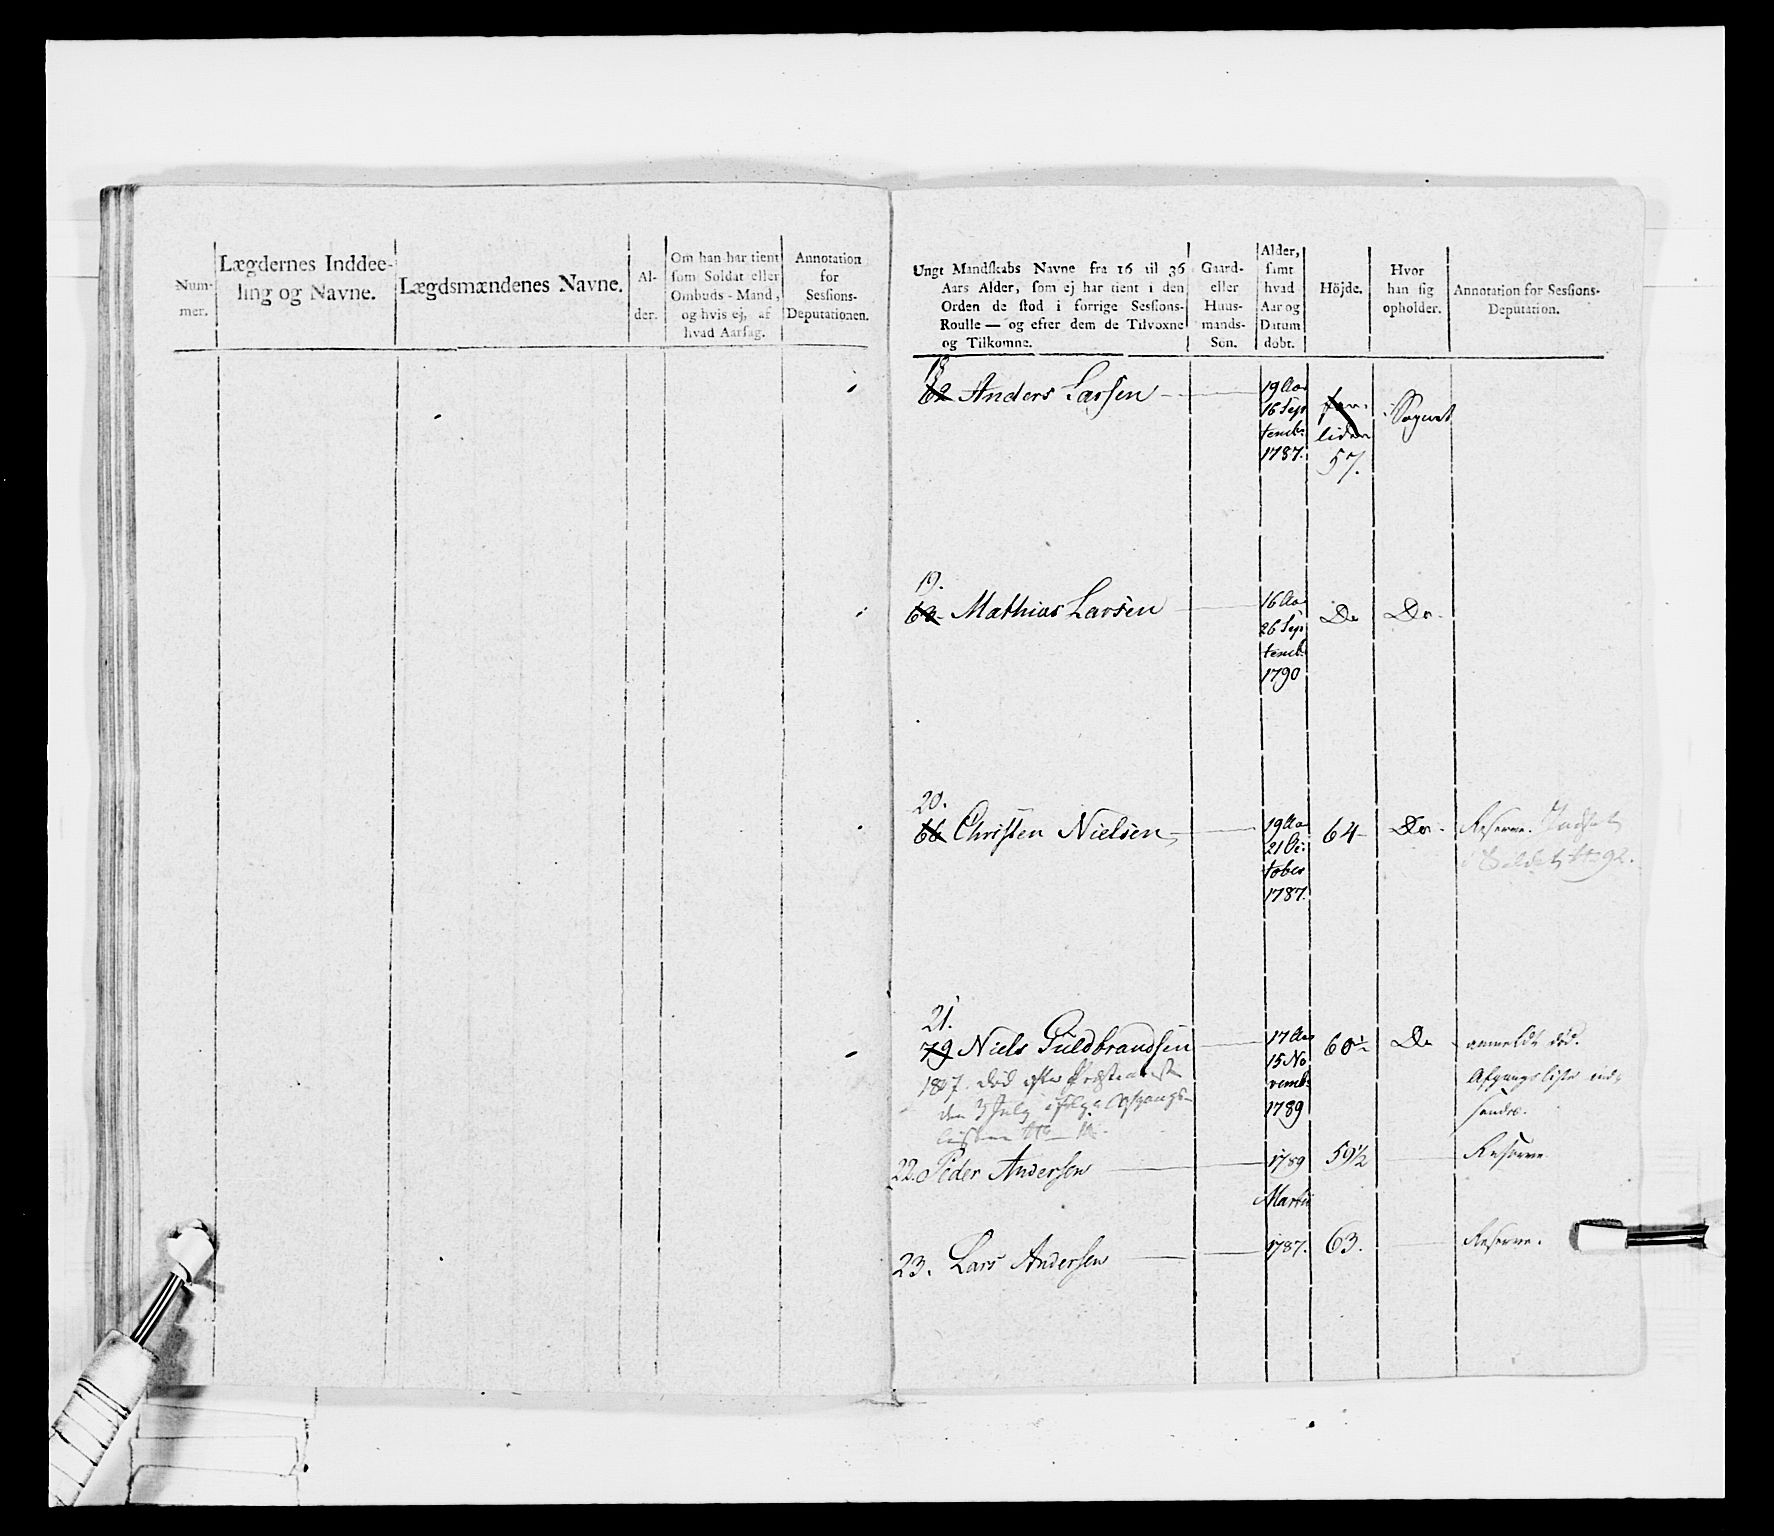 Num-
mer.
Lægdernes Inddee-
ling og Navne.
Lægdsmændenes Navne.
Al-
der.
Om han har tient
som Soldat eller
Ombuds-Mand,
og hvis ej, af
hvad Aarsag.
Annotation
for
Sessions-
Deputationen.
Ungt Mandskabs Navne fra 16 til 36
Aars Alder, som ej har tient i den
Orden de stod i forrige Sessions-
Roulle — og efter dem de Tilvoxne
og Tilkomne.
Gaard-
eller
Huus-
mands-
Søn.
Alder,
samt
hvad
Aar og
Datum
døbt.
Höjde.
Hvor
han sig
opholder.
Annotation for Sessions-
Deputation.
18
62 Anders Larsen
19 Aar
16 Sep
temb:
1787.
for
liden
57.
i Sognet
19.
63 Mathias Larsen
16 Aar
26 Sep
temb:
1790
Do
Do.
20.
66 Christen Nielsen
19 Aar
21 Oc:
tober
1787.
64
Do.
Reserve. Indsat
i Rullet 92.
21.
79 Niels Guldbrandsen
17 Aar
15 No
vemb:
1789
60½
Do
anmeldt død.
Afgangsliste ind-
sendes.
1807. død efter Præstens
den 3 July ifølge Afgangs-
listen
22. Peder Andersen
1789
59½
Reserve
Martii
23. Lars Andersen
1787.
63.
Reserve.